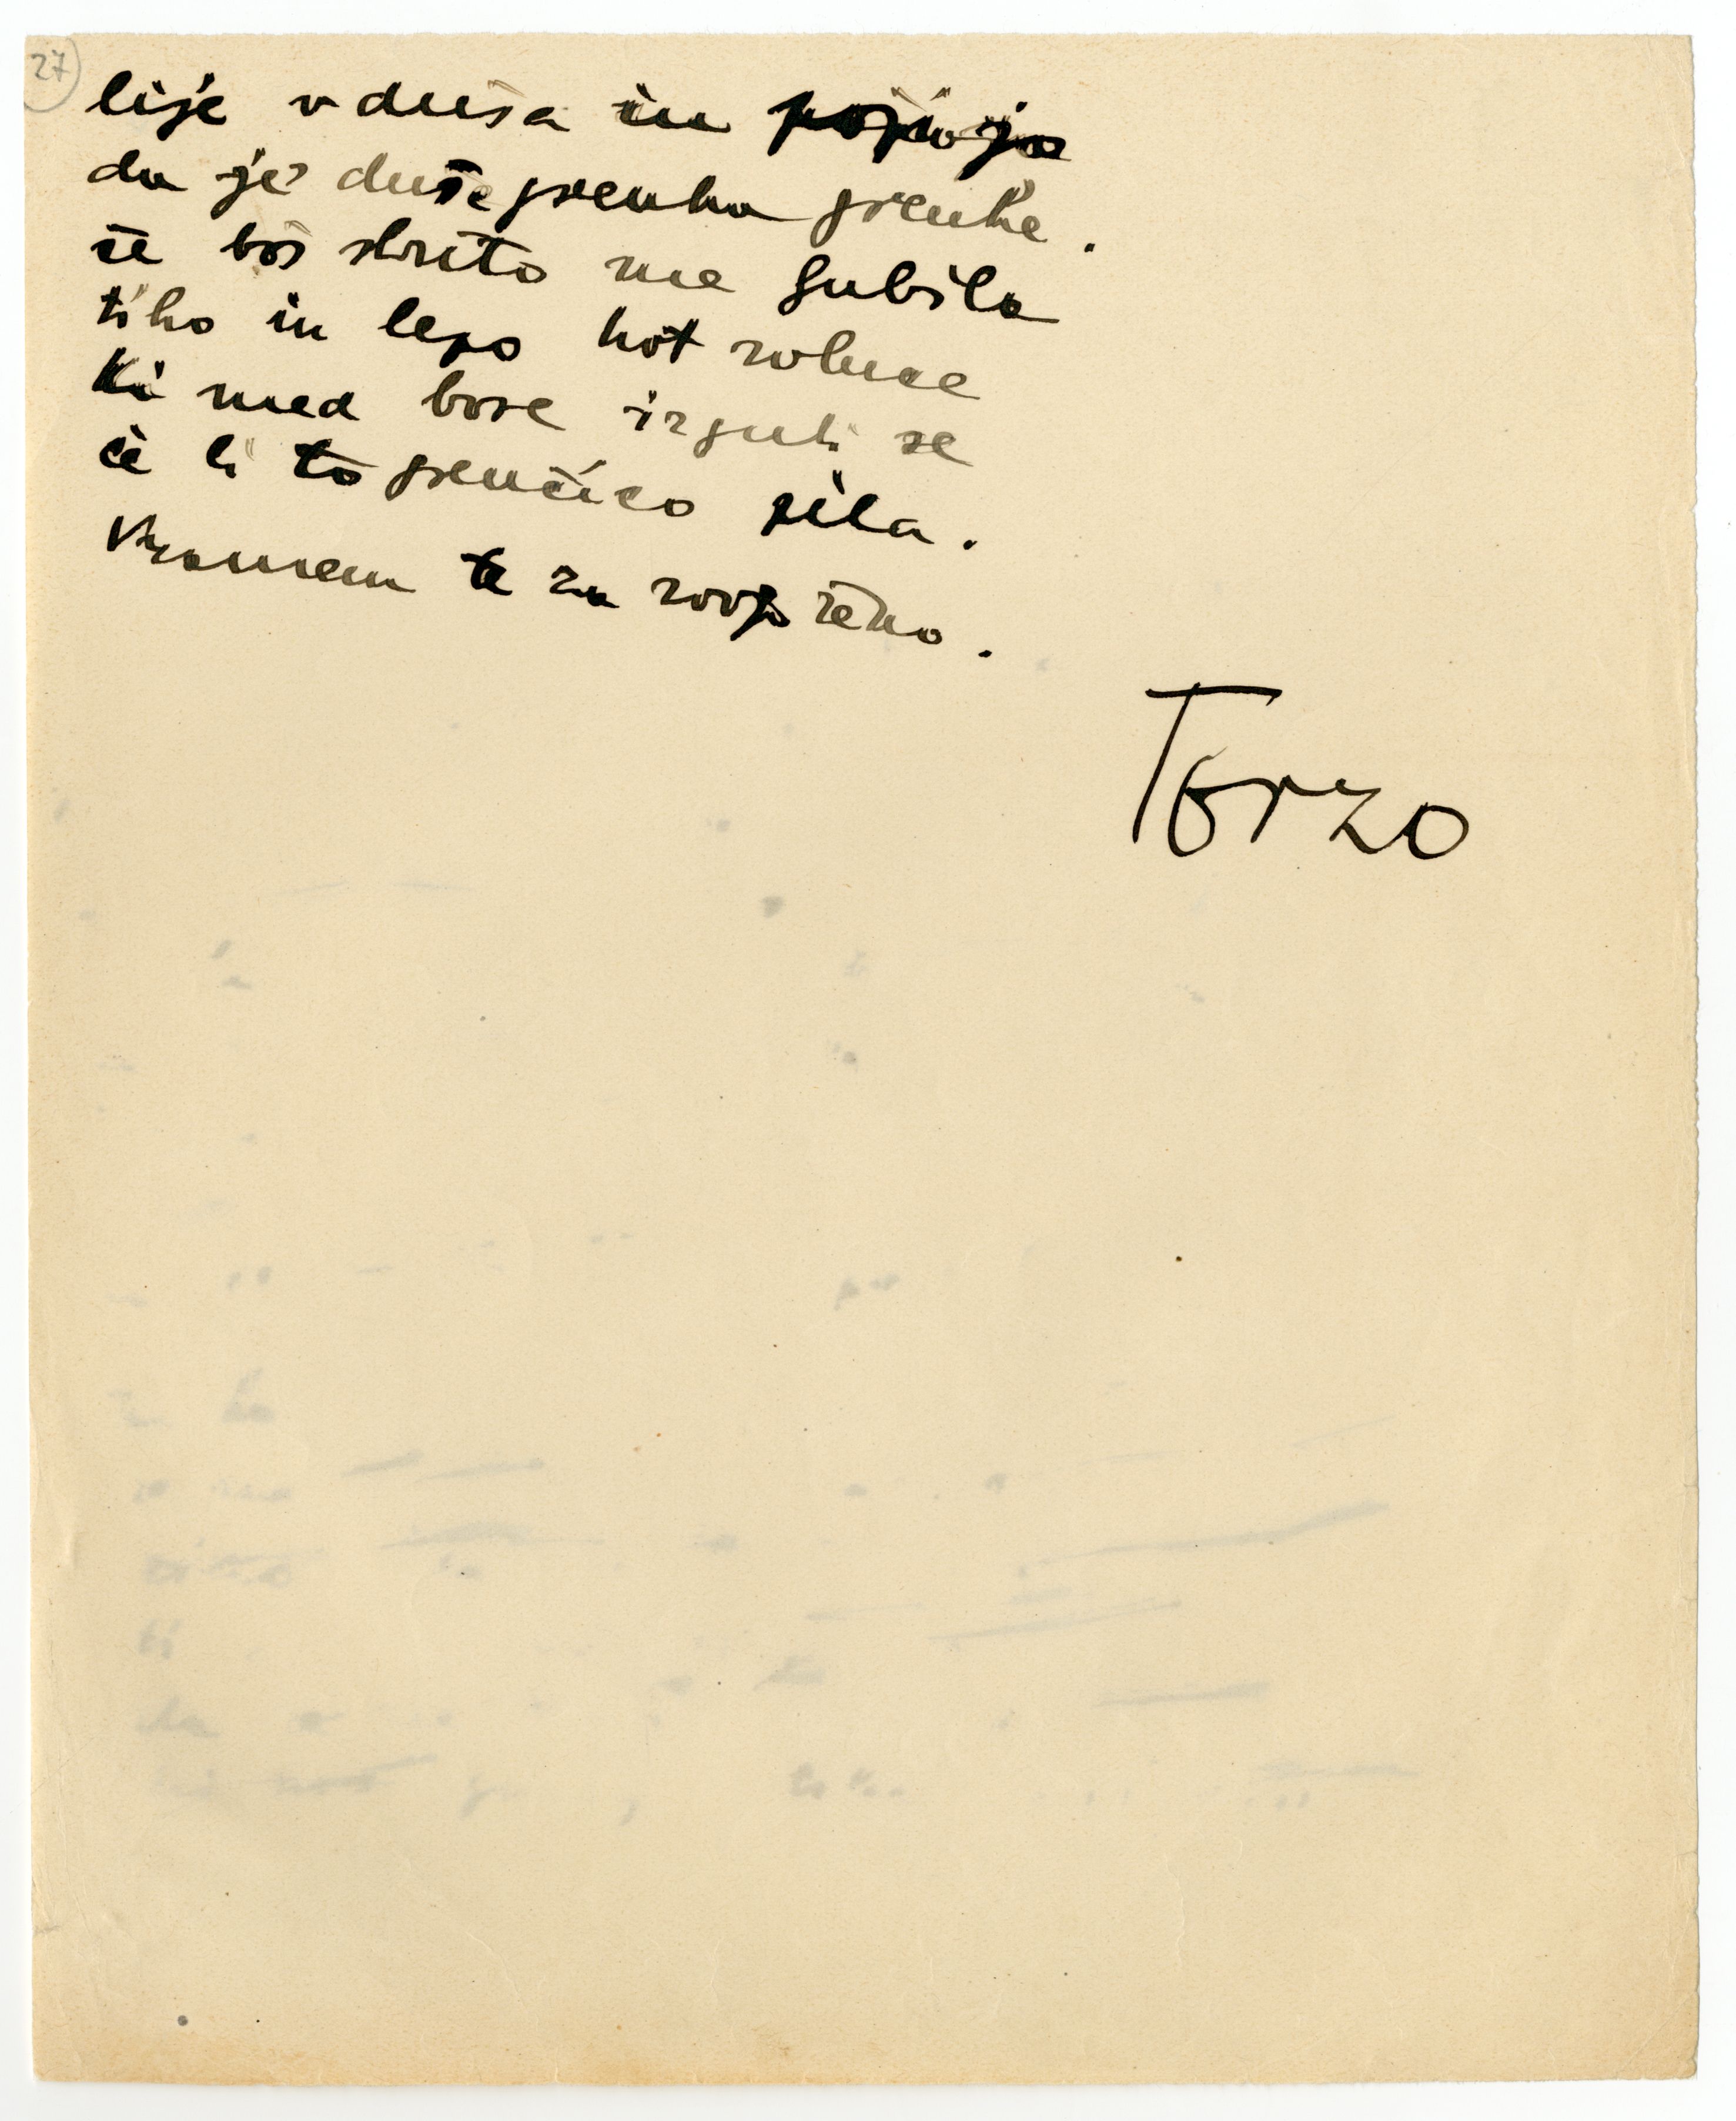 27
lije v duša in
da je duše grenka grenke.
še boš skrito me ljubila
tiho in lepo kot solnce
ki med bore izgubi se
če li to grenčico pila.
Vzamem te za svojo ženo.
Torzo